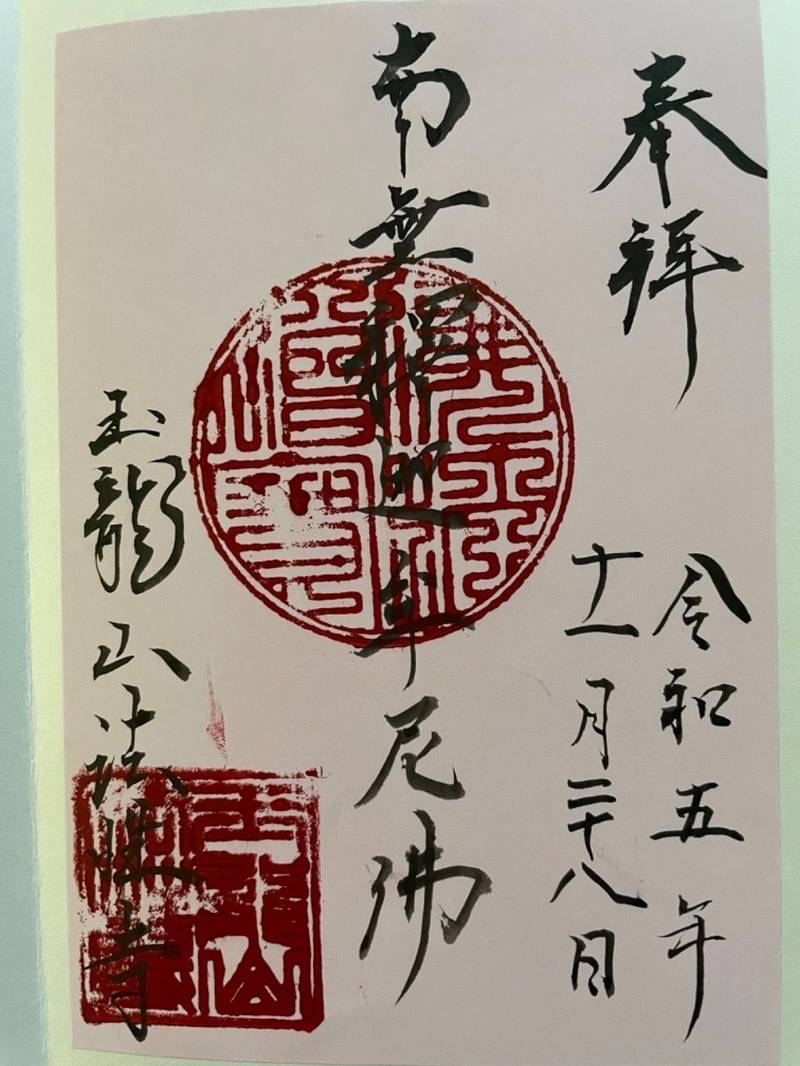 奉拝
令和五年
十一月二十八日
南無釋迦牟尼佛
玉龍山寺
玉龍山